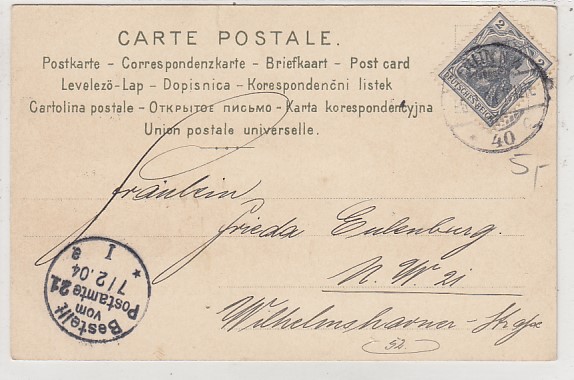 CARTE POSTALE.
Postkarte – Correspondenzkarte – Briefkaart – Post card
Levelező-Lap – Dopisnica – Korespondenční listek
Cartolina postale – Открытое письмо – Karta korespondencyjna
Union postale universelle.
2 2
DEUTSCHES REICH
40
5,-
Fräulein
Frieda Eulenburg.
N. W. 21
Wilhelmshavner-Straße
52
Bestellt
vom
Postamte 21
7/2.04
I
a